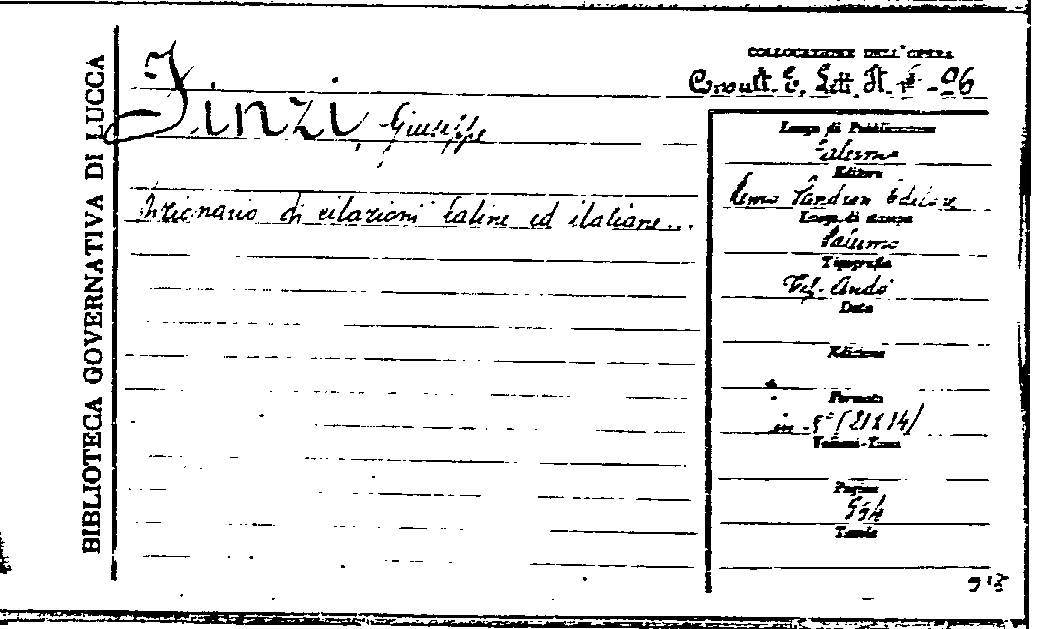 BIBLIOTECA GOVERNATIVA DI LUCCA
Finzi, Giuseppe
Dizionario di citazioni latine ed italiane...
COLLOCAZIONE DELL'OPERA
Consult. E. Lett. It. - 96
Luogo di Pubblicazione
Palermo
Editore
Remo Sandron Editore
Luogo di stampa
Palermo
Tipografia
Tip. Andò
Data
Edizione
Formato
in-8° (21x14)
Volumi-Tomi
Pagine
Tavole